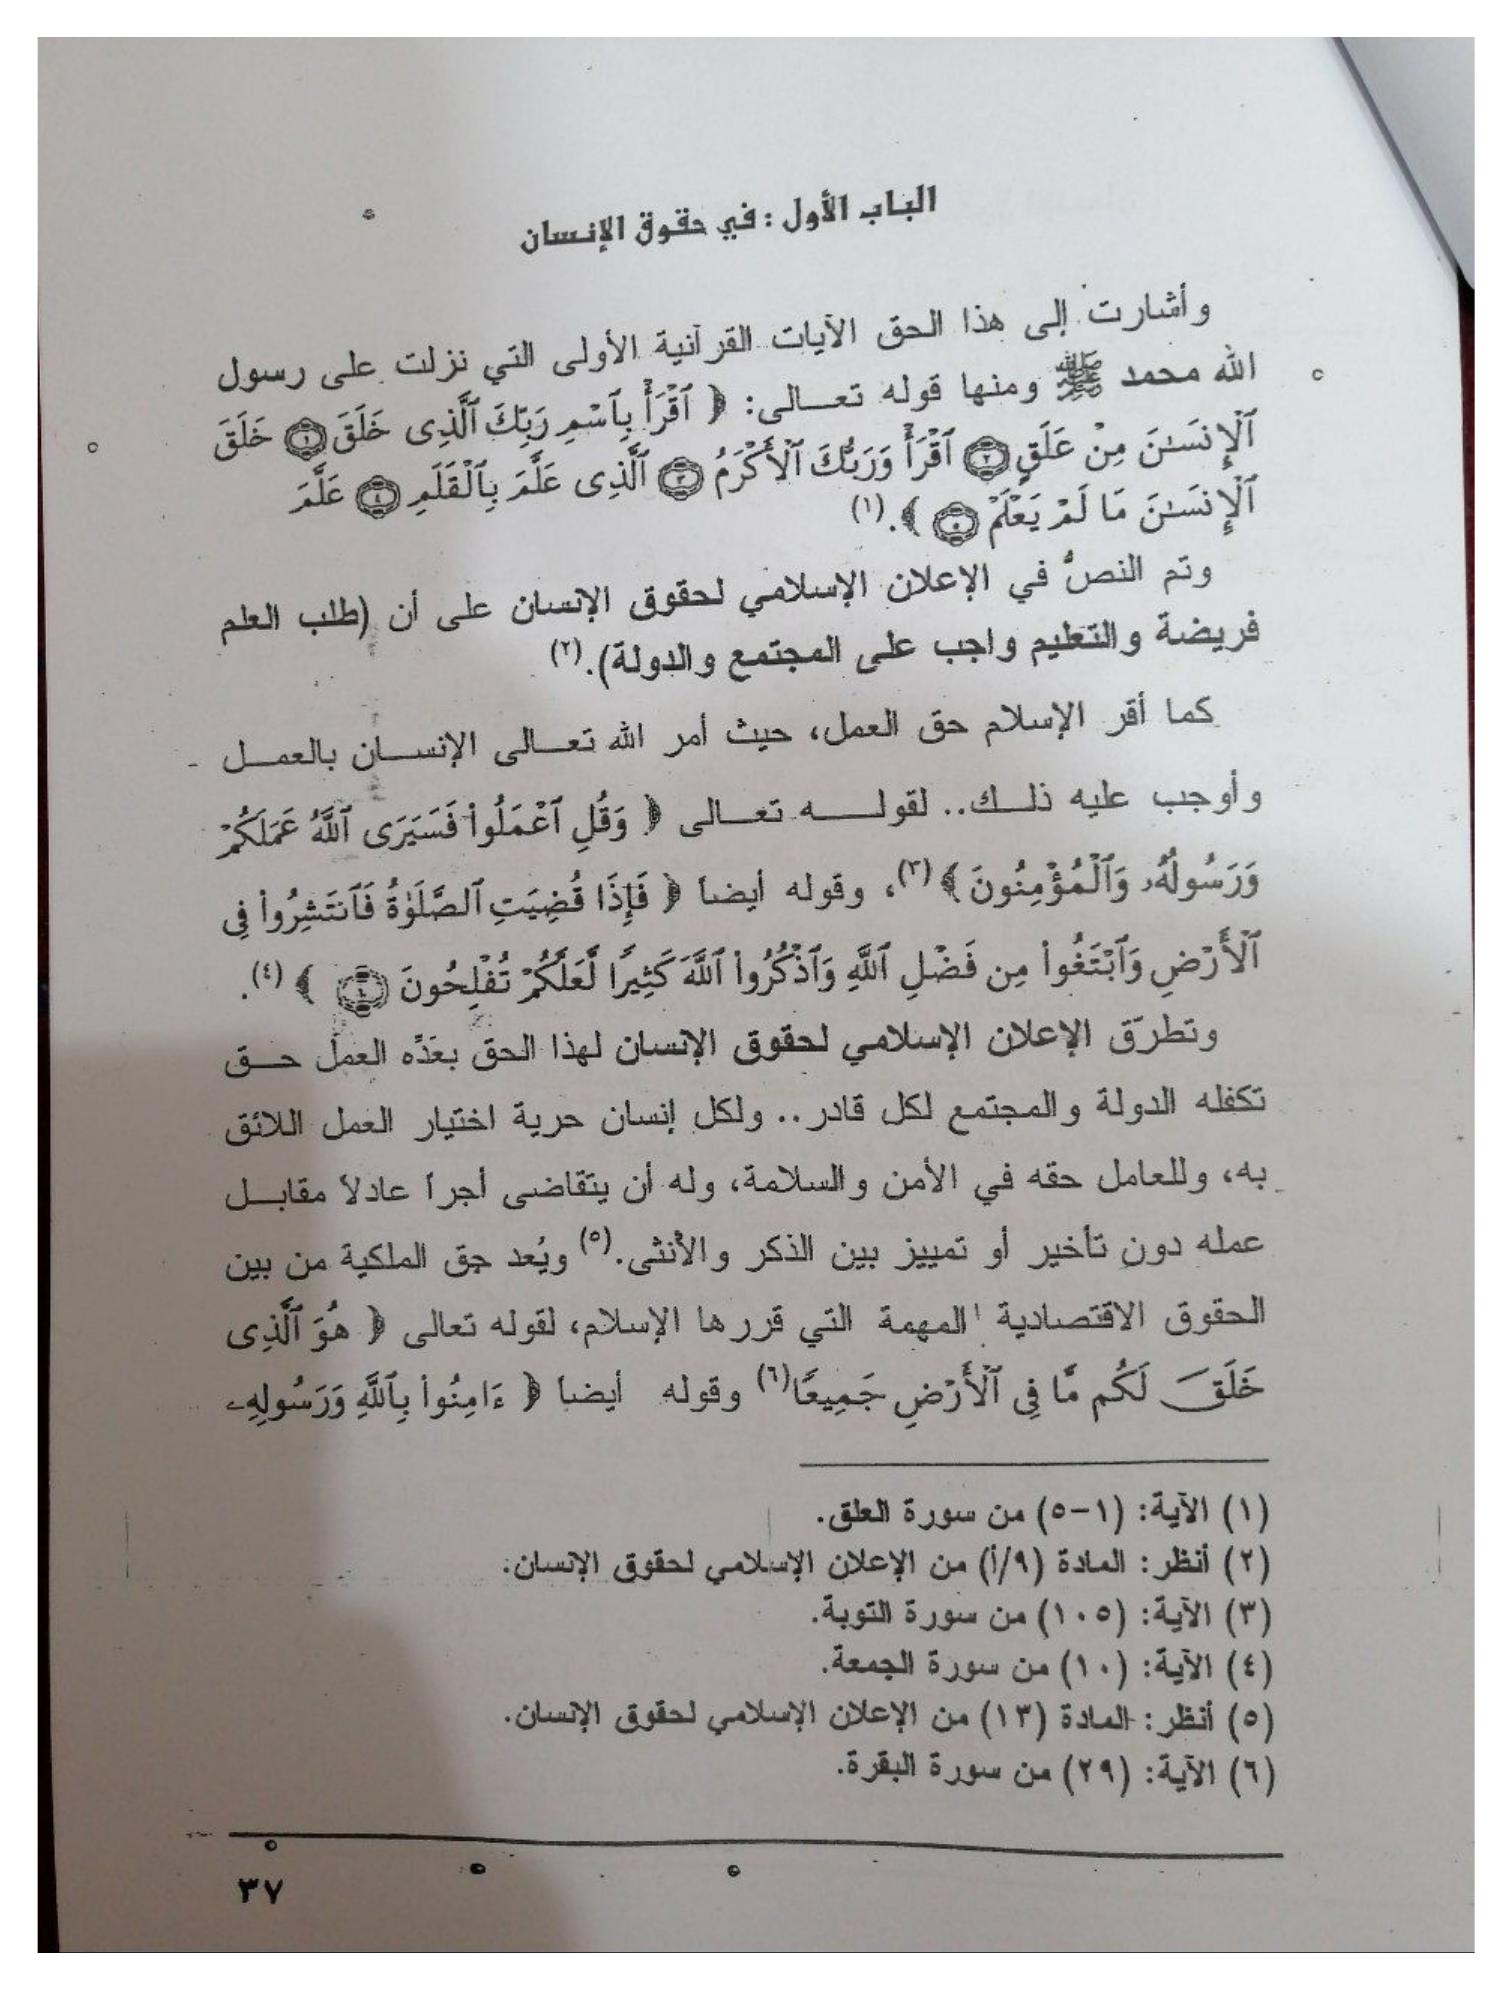 الباب الأول : في حقوق الإنسان
وأشارت إلى هذا الحق الآيات القرآنية الأولى التي نزلت على رسول
الله محمد ﷺ ومنها قوله تعـالى: ﴿ ٱقْرَأْ بِٱسْمِ رَبِّكَ ٱلَّذِى خَلَقَ ۝١ خَلَقَ
ٱلْإِنسَـٰنَ مِنْ عَلَقٍ ۝٢ ٱقْرَأْ وَرَبُّكَ ٱلْأَكْرَمُ ۝٣ ٱلَّذِى عَلَّمَ بِٱلْقَلَمِ ۝٤ عَلَّمَ
ٱلْإِنسَـٰنَ مَا لَمْ يَعْلَمْ ۝٥ ﴾.(١)
وتم النصُّ في الإعلان الإسلامي لحقوق الإنسان على أن (طلب العلم
فريضة والتعليم واجب على المجتمع والدولة).(٢)
كما أقر الإسلام حق العمل، حيث أمر الله تعـالى الإنسـان بالعمـل
وأوجب عليه ذلـك.. لقولـه تعـالى ﴿ وَقُلِ ٱعْمَلُوا۟ فَسَيَرَى ٱللَّهُ عَمَلَكُمْ
وَرَسُولُهُۥ وَٱلْمُؤْمِنُونَ ﴾(٣)، وقوله أيضاً ﴿ فَإِذَا قُضِيَتِ ٱلصَّلَوٰةُ فَٱنتَشِرُوا۟ فِى
ٱلْأَرْضِ وَٱبْتَغُوا۟ مِن فَضْلِ ٱللَّهِ وَٱذْكُرُوا۟ ٱللَّهَ كَثِيرًا لَّعَلَّكُمْ تُفْلِحُونَ ۝١٠ ﴾(٤).
وتطرّق الإعلان الإسلامي لحقوق الإنسان لهذا الحق بعَدِّه العمل حـق
تكفله الدولة والمجتمع لكل قادر.. ولكل إنسان حرية اختيار العمل اللائق
به، وللعامل حقه في الأمن والسلامة، وله أن يتقاضى أجراً عادلاً مقابـل
عمله دون تأخير أو تمييز بين الذكر والأنثى.(٥) ويُعد حق الملكية من بين
الحقوق الاقتصادية المهمة التي قررها الإسلام، لقوله تعالى ﴿ هُوَ ٱلَّذِى
خَلَقَ لَكُم مَّا فِى ٱلْأَرْضِ جَمِيعًا(٦) وقوله أيضاً ﴿ ءَامِنُوا۟ بِٱللَّهِ وَرَسُولِهِۦ
(١) الآية: (١-٥) من سورة العلق.
(٢) أنظر: المادة (٩/أ) من الإعلان الإسلامي لحقوق الإنسان.
(٣) الآية: (١٠٥) من سورة التوبة.
(٤) الآية: (١٠) من سورة الجمعة.
(٥) أنظر: المادة (١٣) من الإعلان الإسلامي لحقوق الإنسان.
(٦) الآية: (٢٩) من سورة البقرة.
٣٧